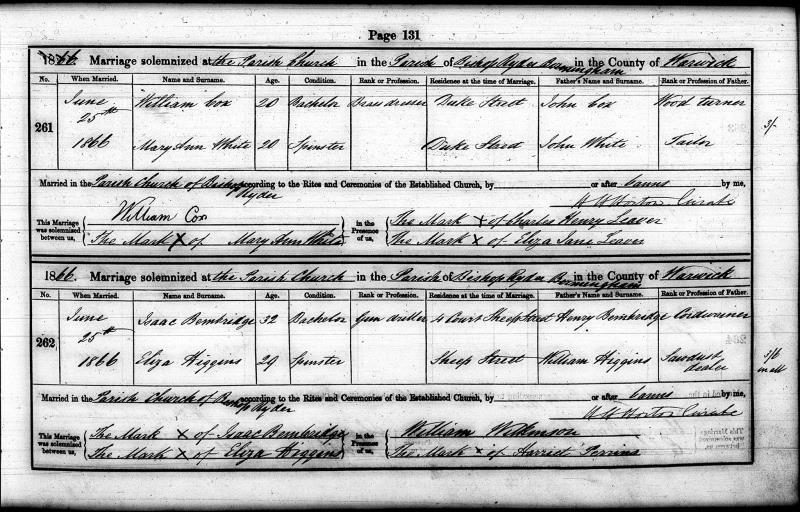 Page 131
1866. Marriage solemnized at the Parish Church in the Parish of Bishop Ryder Birmingham in the County of Warwick
No. When Married. Name and Surname. Age. Condition. Rank or Profession. Residence at the time of Marriage. Father's Name and Surname. Rank or Profession of Father.
June William Cox 20 Bachelor Brass dresser Duke Street John Cox Wood turner
25th
261
1866 Mary Ann White 20 Spinster Duke Street John White Tailor
3/-
Married in the Parish Church of Bishop Ryder according to the Rites and Ceremonies of the Established Church, by or after banns by me,
Horton Curate
This Marriage was solemnized between us, William Cox in the Presence of us, The Mark X of Charles Henry Leaver
The Mark X of Mary Ann White The Mark X of Eliza Jane Leaver
1866. Marriage solemnized at the Parish Church in the Parish of Bishop Ryder Birmingham in the County of Warwick
No. When Married. Name and Surname. Age. Condition. Rank or Profession. Residence at the time of Marriage. Father's Name and Surname. Rank or Profession of Father.
June Isaac Bembridge 32 Bachelor Gun driller 4 Court Sheep Street Henry Bembridge Cordwainer
25th
262
1866 Eliza Higgins 29 Spinster Sheep Street William Higgins Sawdust dealer
in all
Married in the Parish Church of Bishop Ryder according to the Rites and Ceremonies of the Established Church, by or after banns by me,
Horton Curate
This Marriage was solemnized between us, The Mark X of Isaac Bembridge in the Presence of us, William Wilkinson
The Mark X of Eliza Higgins The Mark X of Harriet Perrins